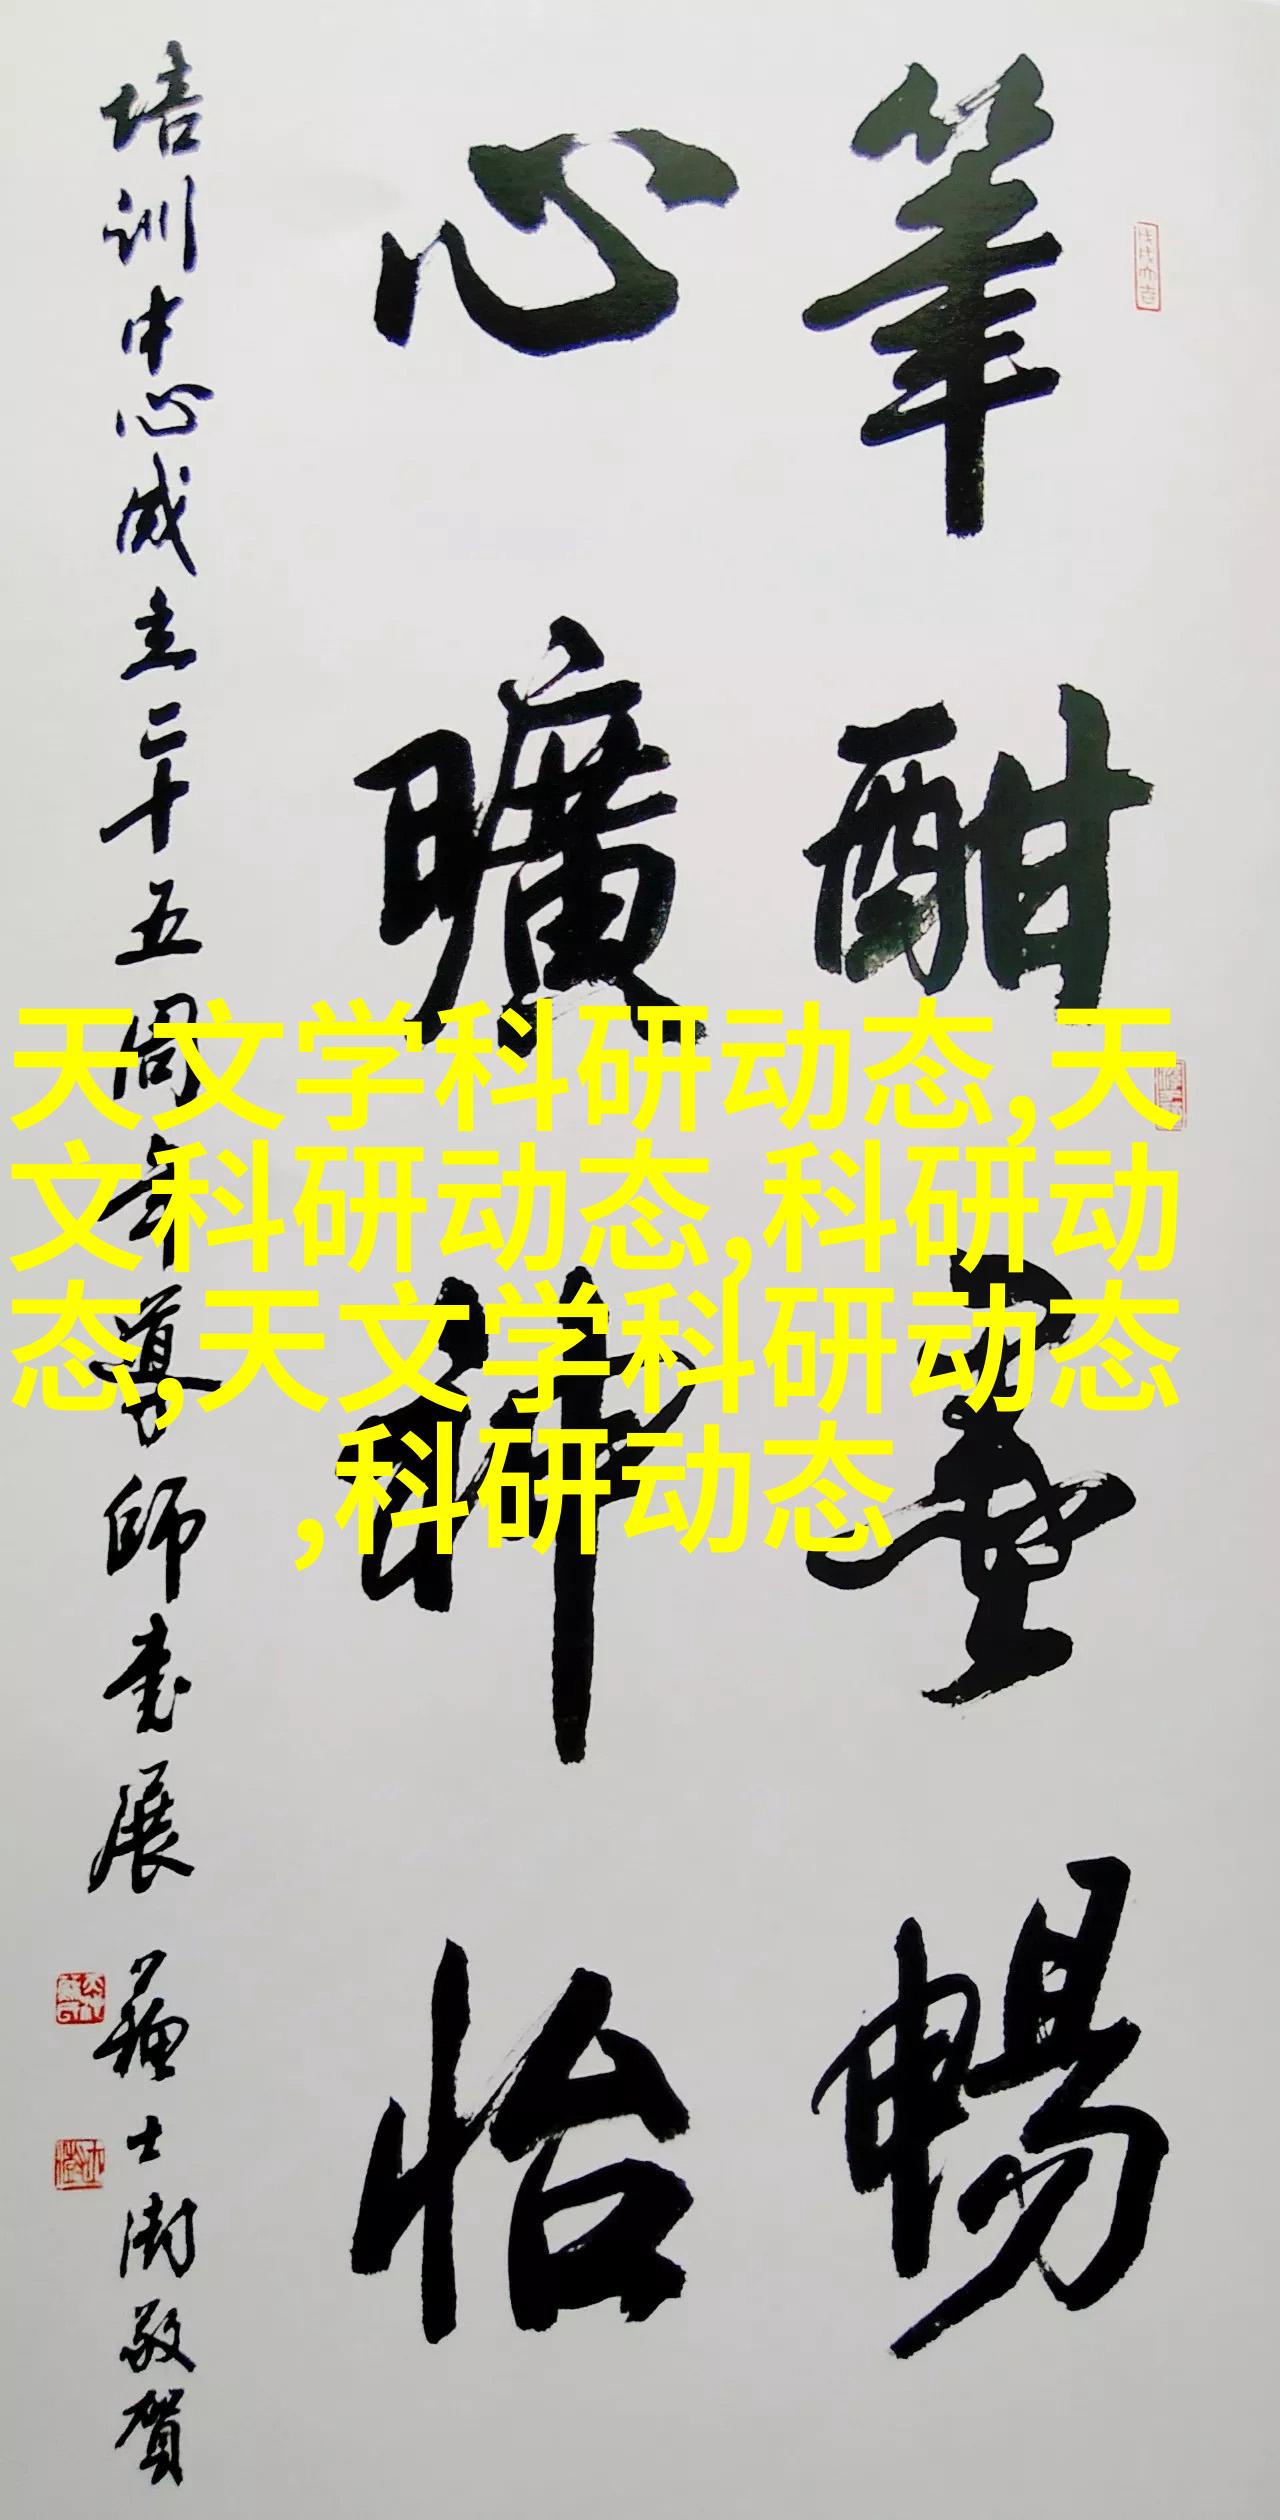 筆酣墨暢
心曠神怡
培训中心成立二十五周年導師書展
士澍敬賀
天文学科研动态,天
文科研动态,科研动
态,天文学科研动态
,科研动态